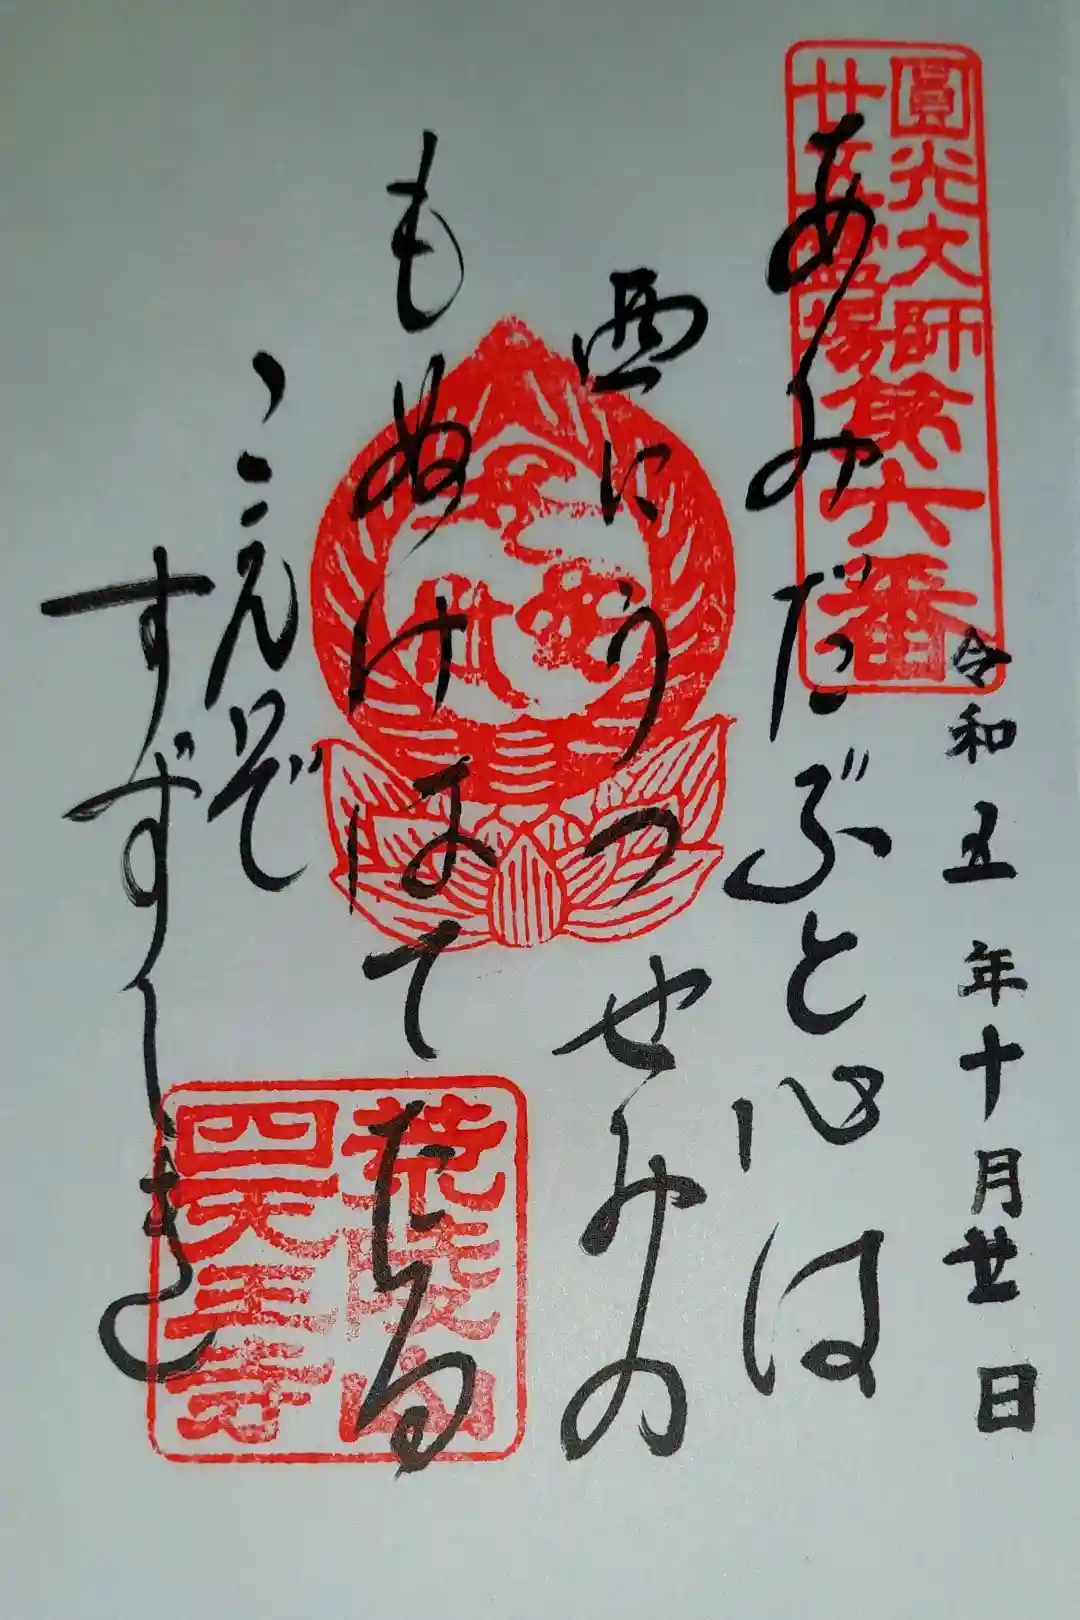 圓光大師
廿五靈場
第六番
令和五年十月廿日
あみだぶと心は
西にうつせみの
もぬけはてたる
こえぞ
すずしき
荒陵山
四天王寺